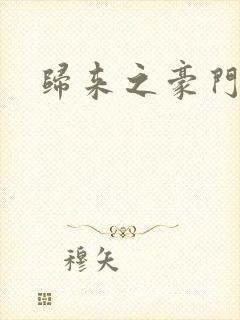 歸来之豪門
穆矢